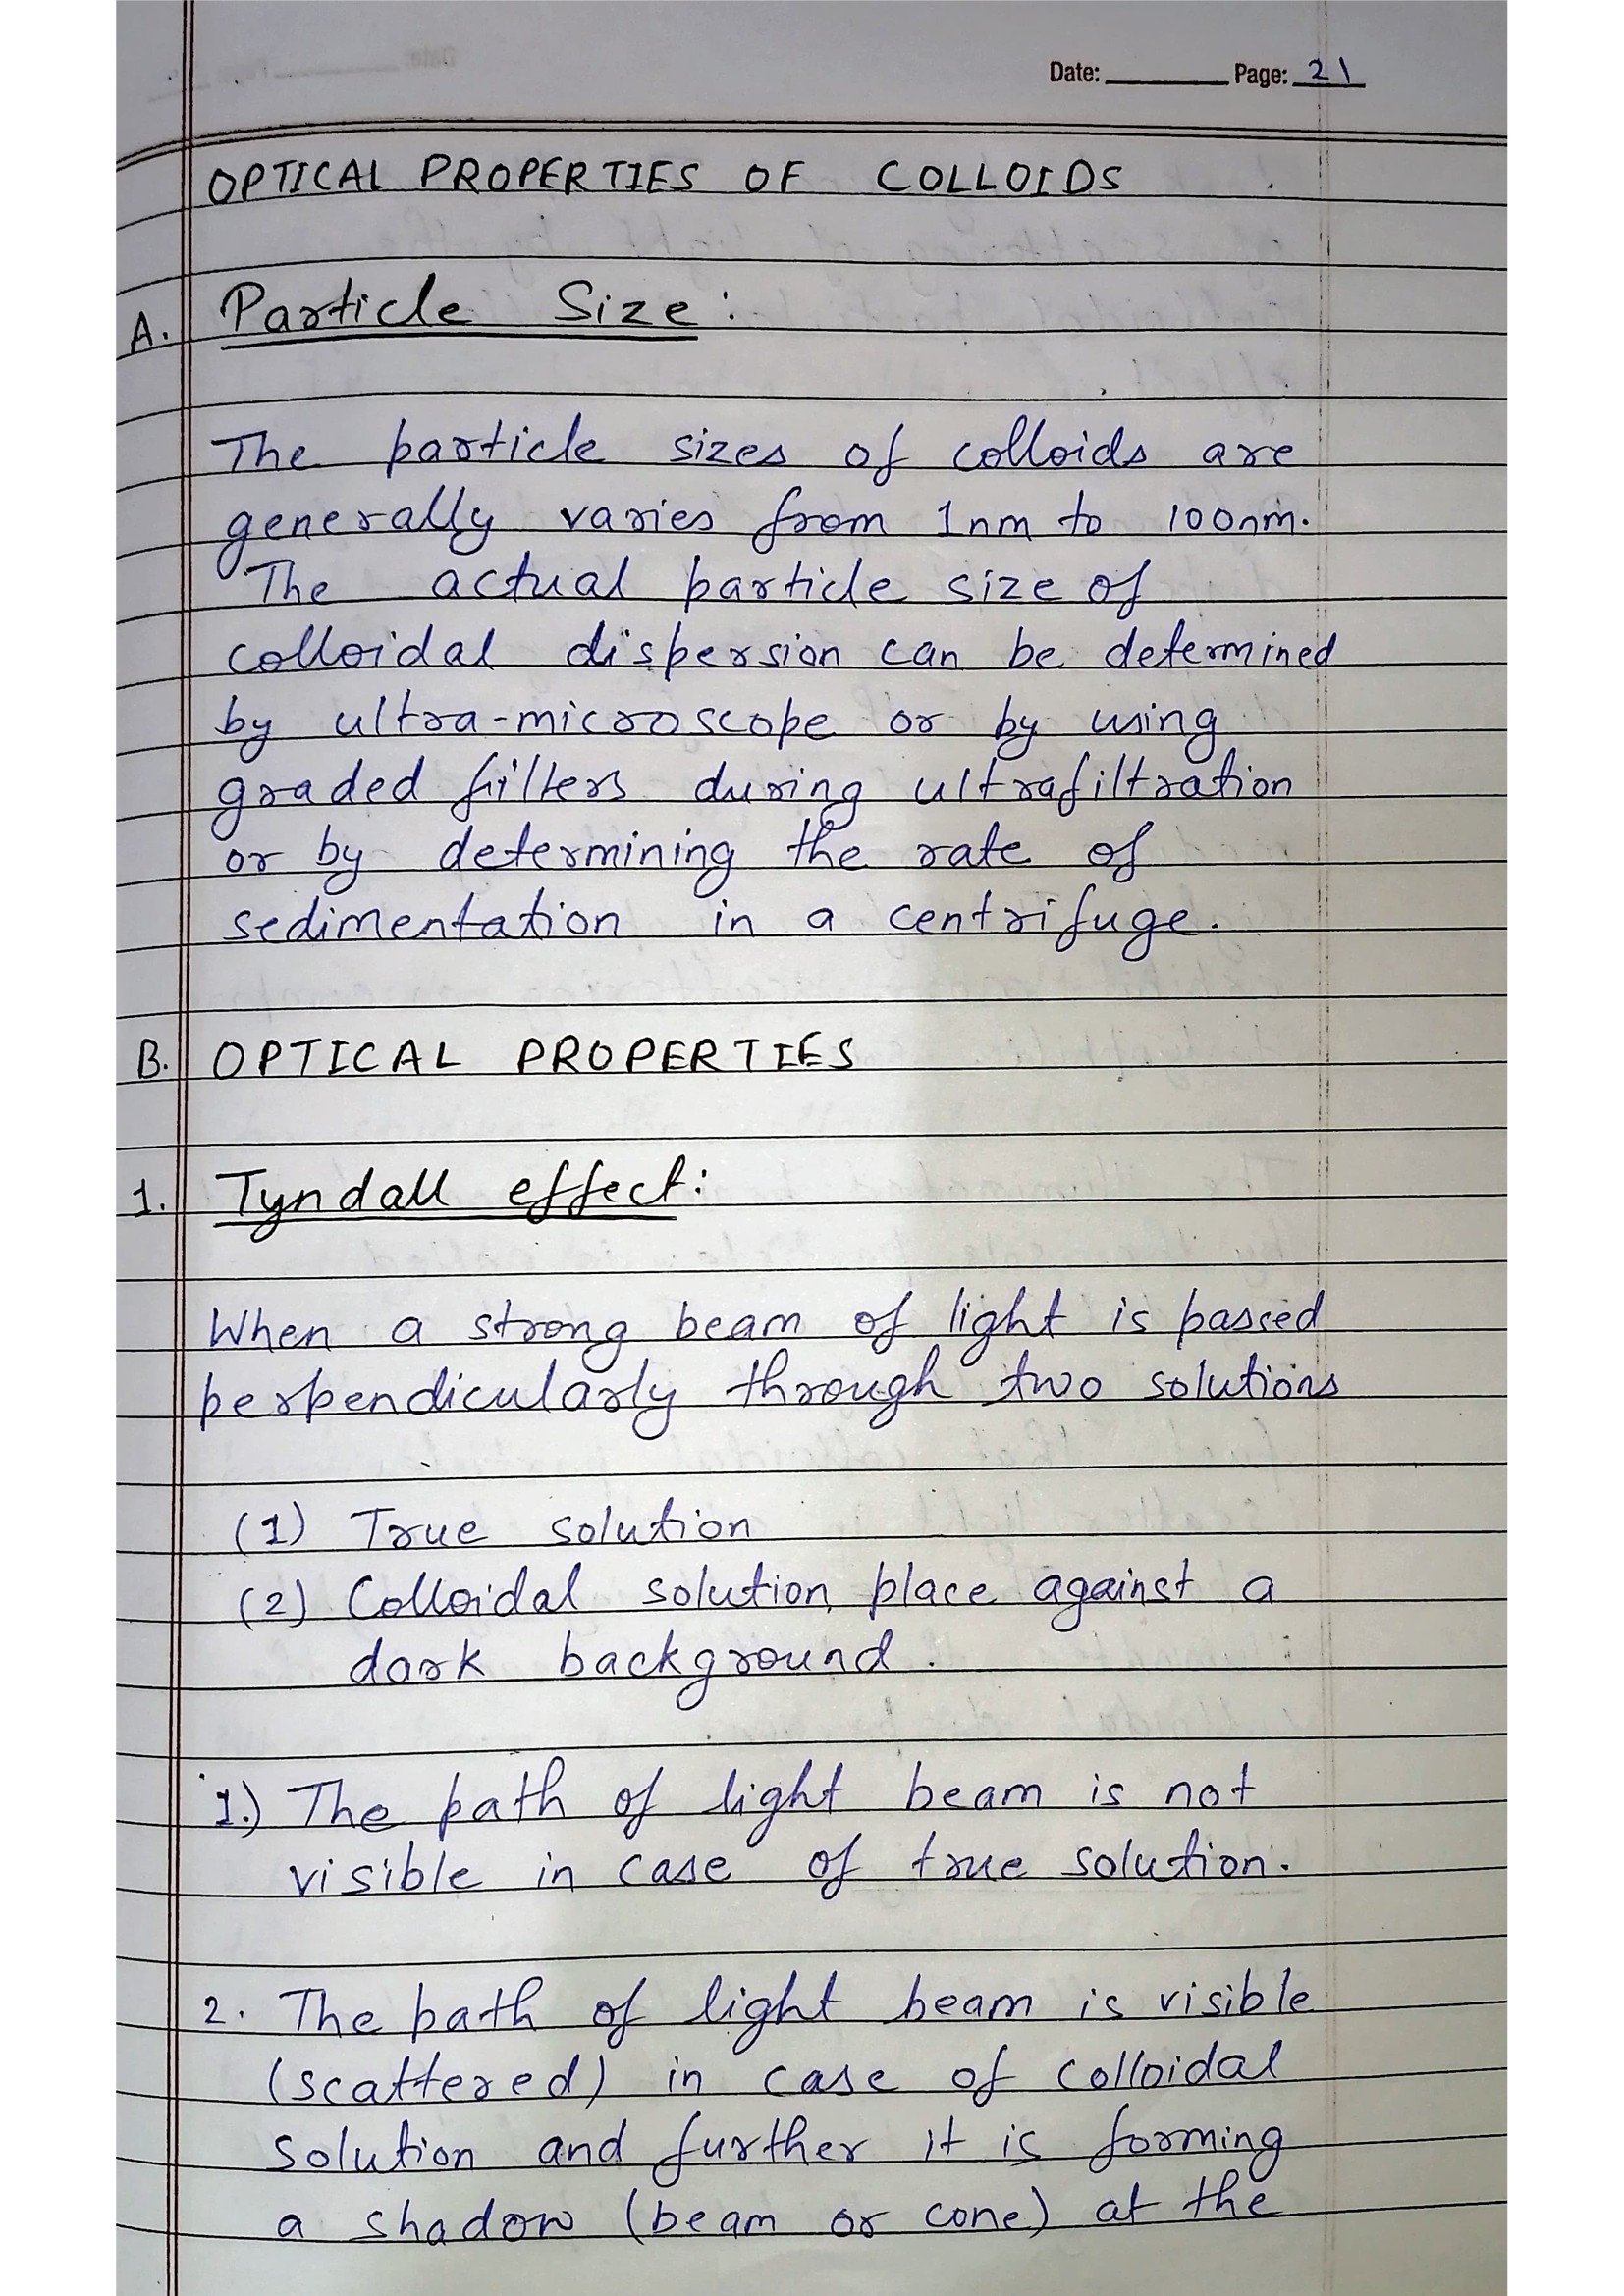 Date: Page: 21
OPTICAL PROPERTIES OF COLLOIDS
A. Particle Size:
The particle sizes of colloids are
generally varies from 1nm to 100nm.
The actual particle size of
colloidal dispersion can be determined
by ultra-microscope or by using
graded filters during ultrafiltration
or by determining the rate of
sedimentation in a centrifuge.
B. OPTICAL PROPERTIES
1. Tyndall effect:
When a strong beam of light is passed
perpendicularly through two solutions
(1) True solution
(2) Colloidal solution place against a
dark background.
1.) The path of light beam is not
visible in case of true solution.
2. The path of light beam is visible
(scattered) in case of colloidal
solution and further it is forming
a shadow (beam or cone) at the